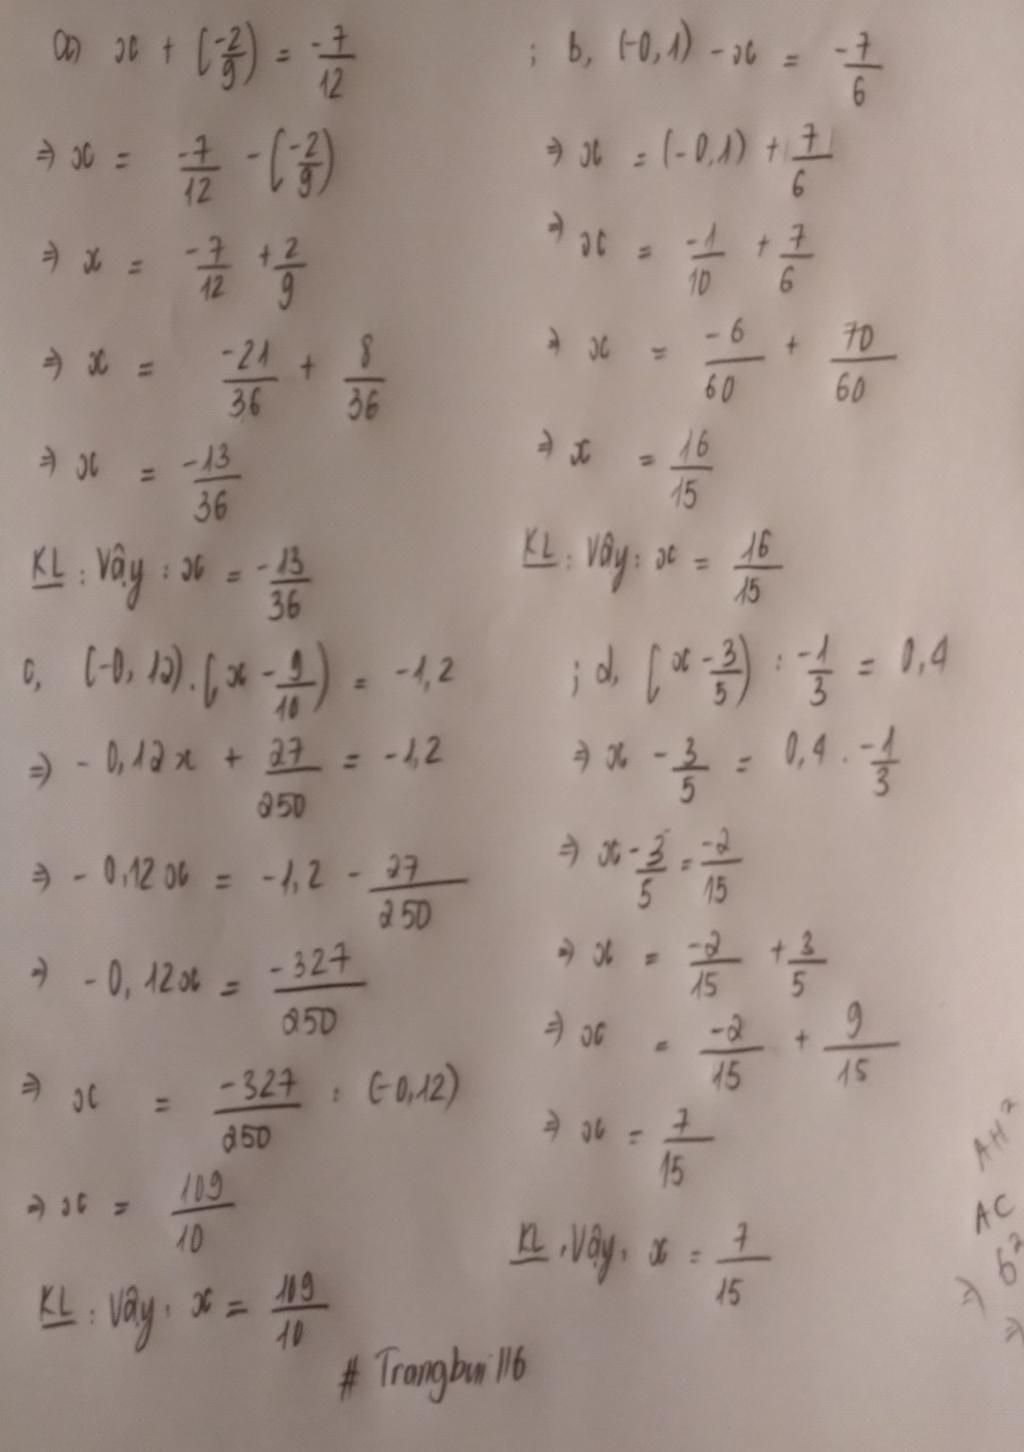 a) x + (-2/9) = -7/12
⇒ x = -7/12 - (-2/9)
⇒ x = -7/12 + 2/9
⇒ x = -21/36 + 8/36
⇒ x = -13/36
KL : Vậy : x = -13/36
; b, (-0,1) - x = -7/6
⇒ x = (-0,1) + 7/6
⇒ x = -1/10 + 7/6
⇒ x = -6/60 + 70/60
⇒ x = 16/15
KL : Vậy : x = 16/15
c, (-0,12) . (x - 9/10) = -1,2
⇒ -0,12x + 27/250 = -1,2
⇒ -0,12x = -1,2 - 27/250
⇒ -0,12x = -327/250
⇒ x = -327/250 : (-0,12)
⇒ x = 109/10
KL : Vậy : x = 109/10
; d, (x - 3/5) : -1/3 = 0,4
⇒ x - 3/5 = 0,4 . -1/3
⇒ x - 3/5 = -2/15
⇒ x = -2/15 + 3/5
⇒ x = -2/15 + 9/15
⇒ x = 7/15
KL : Vậy : x = 7/15
# Trangbui 116
AH²
AC
⇒
⇒